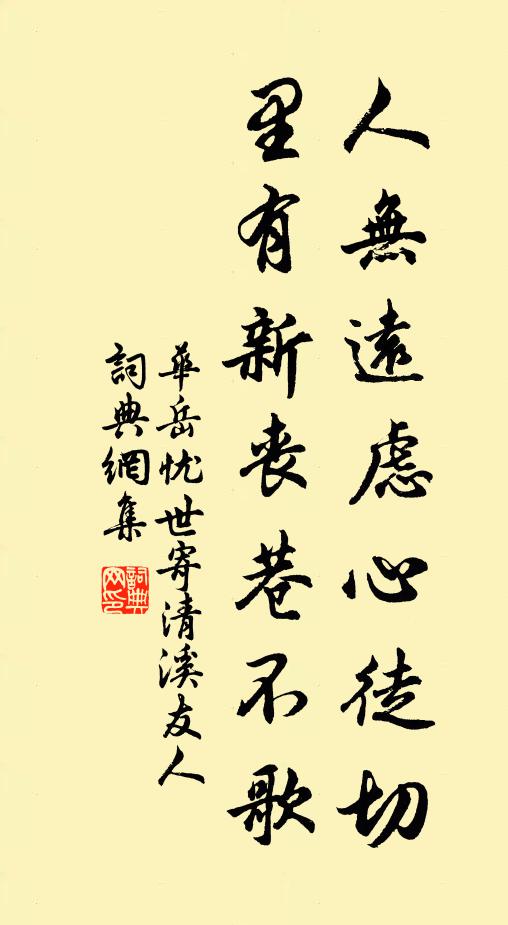 人無遠慮心徒切
里有新喪巷不歌
華岳忧世寄清溪友人
詞典網集
詞典網印